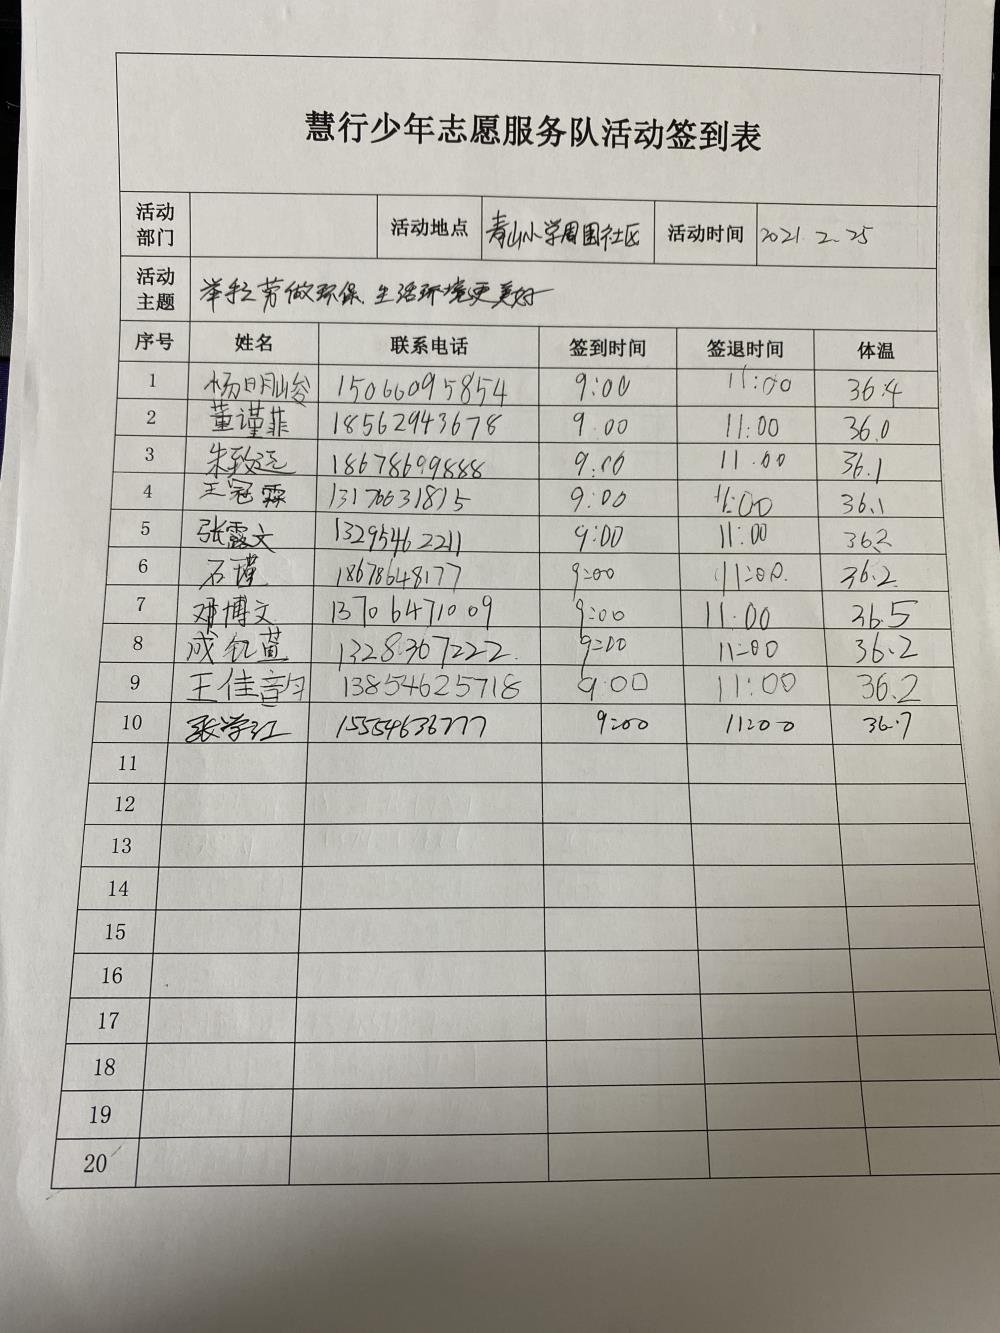 慧行少年志愿服务队活动签到表
活动部门 活动地点 青山小学周围社区 活动时间 2021.2.25
活动主题 举手之劳做环保 生活环境更美好
序号 姓名 联系电话 签到时间 签退时间 体温
1 杨明峻 15066095854 9:00 11:00 36.4
2 董谨菲 18562943678 9:00 11:00 36.0
3 朱致远 18678699888 9:00 11:00 36.1
4 王冠霖 13170631815 9:00 11:00 36.1
5 张露文 13295462211 9:00 11:00 36.2
6 石瑾 18678648177 9:00 11:00 36.2
7 邓博文 13706471009 9:00 11:00 36.5
8 成 萱 1328367222 9:00 11:00 36.2
9 王佳韵 13854625718 9:00 11:00 36.2
10 张学红 15554636777 9:00 11:00 36.7
11
12
13
14
15
16
17
18
19
20